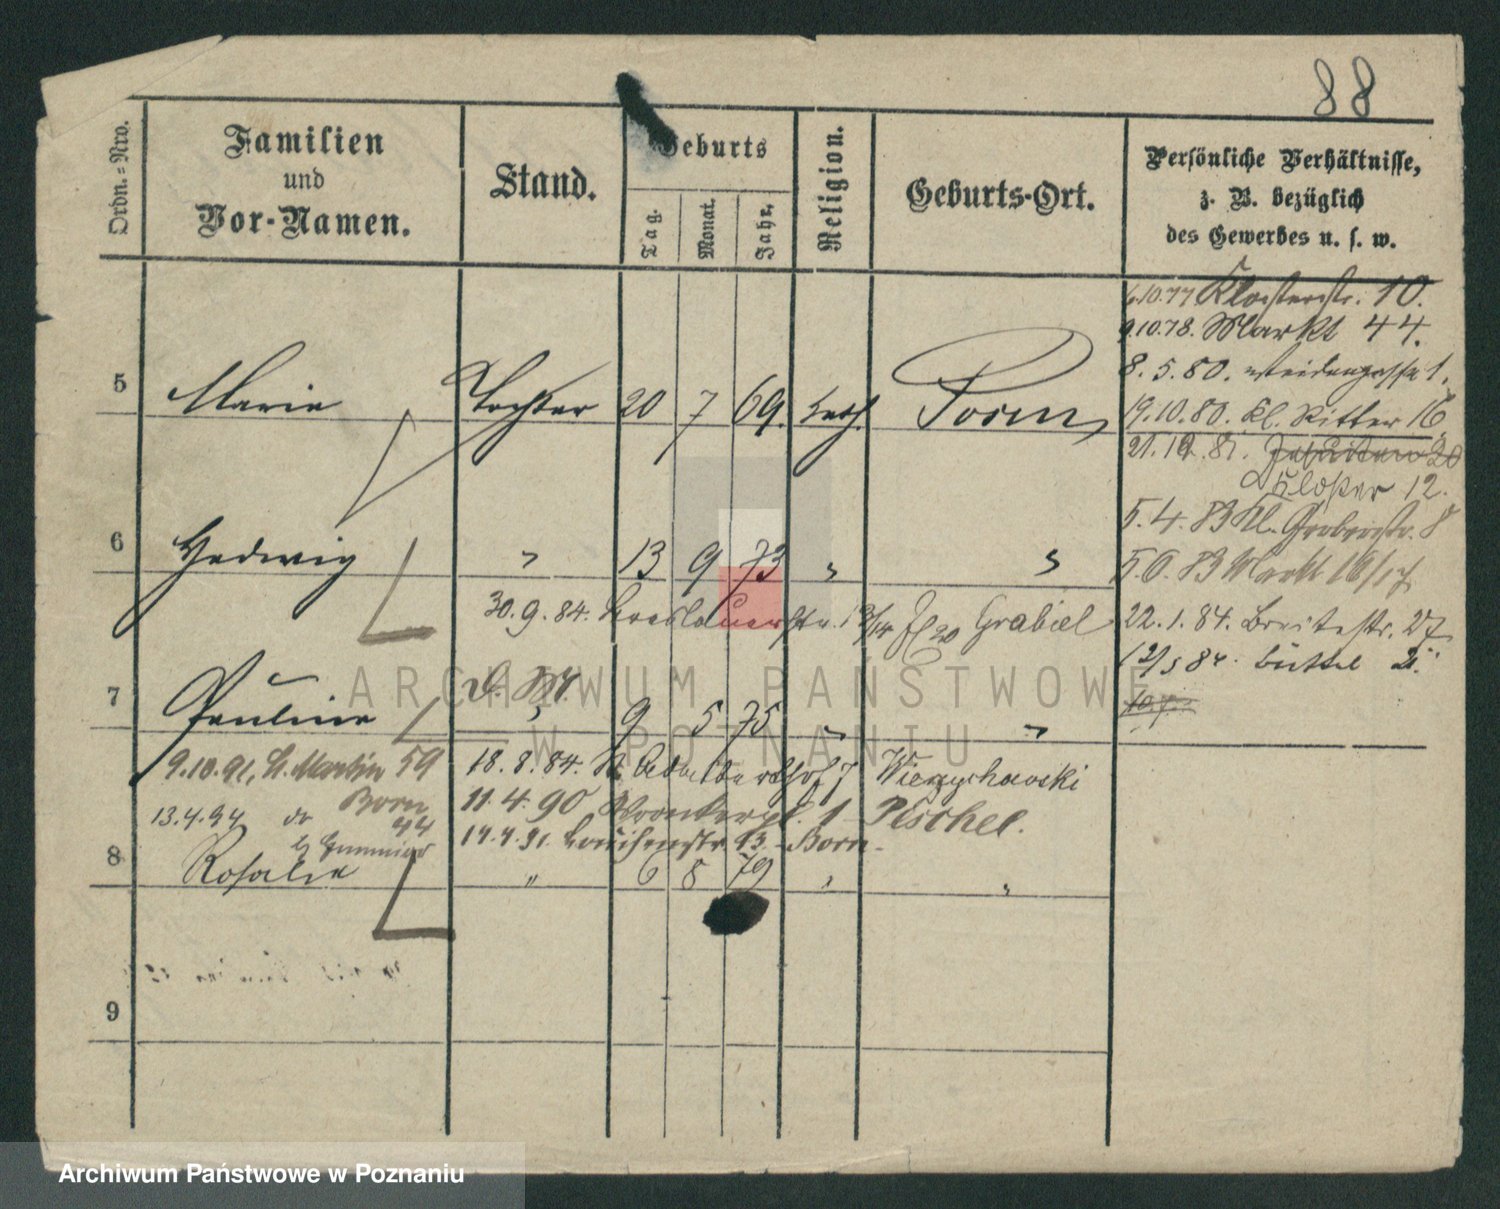 88
Ordn.-Nro. Familien und Vor-Namen. Stand. Geburts Tag. Monat. Jahr. Religion. Geburts-Ort. Persönliche Verhältnisse, z. B. bezüglich des Gewerbes u. s. w.
6.10.77 Klosterstr. 10.
9.10.78. Markt 44.
8.5.80. Weidengasse 1.
5 Marie Tochter 20 7 69. kath. Posen
19.10.80. Kl. Ritter 16
21.12.81. Jesuiten 20
Kloster 12.
5.4.83 Kl. Gerberstr. 8
6 Hedwig " 13 9 73 " "
5.6.83 Markt 16/17
30.9.84. Breslauerstr. 13/14 Grabiel
22.1.84. Breitestr. 27
12/5 84. Büttel
7 Pauline " 9 5 75 " "
9.10.91, St. Martin 59
Born
18.8.84. St. Adalbertshof 7
11.4.90 Wronkerpl. 1 Pischel.
13.4.94 do 44
14.4.91. 13. Born
8 Rosalie " 6 8 79 " "
9
ARCHIWUM PAŃSTWOWE
W POZNANIU
Archiwum Państwowe w Poznaniu